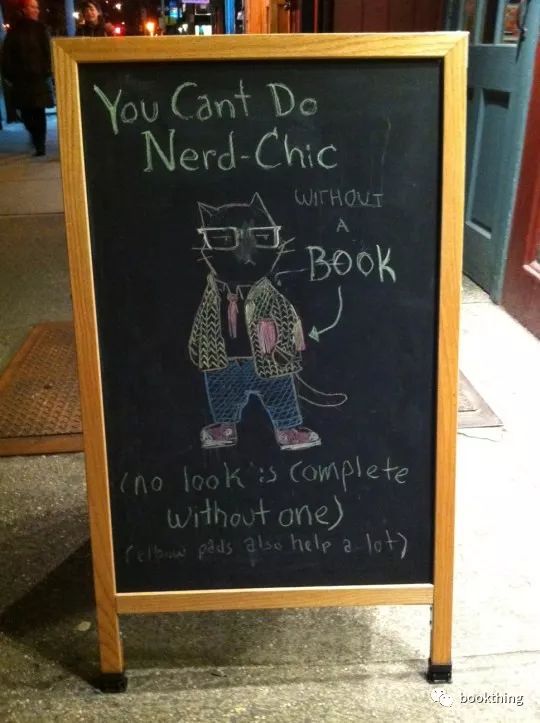 You Cant Do
Nerd-Chic
WITHOUT
A
BOOK
(no look is complete
without one)
(elbow pads also help a lot)
bookthing